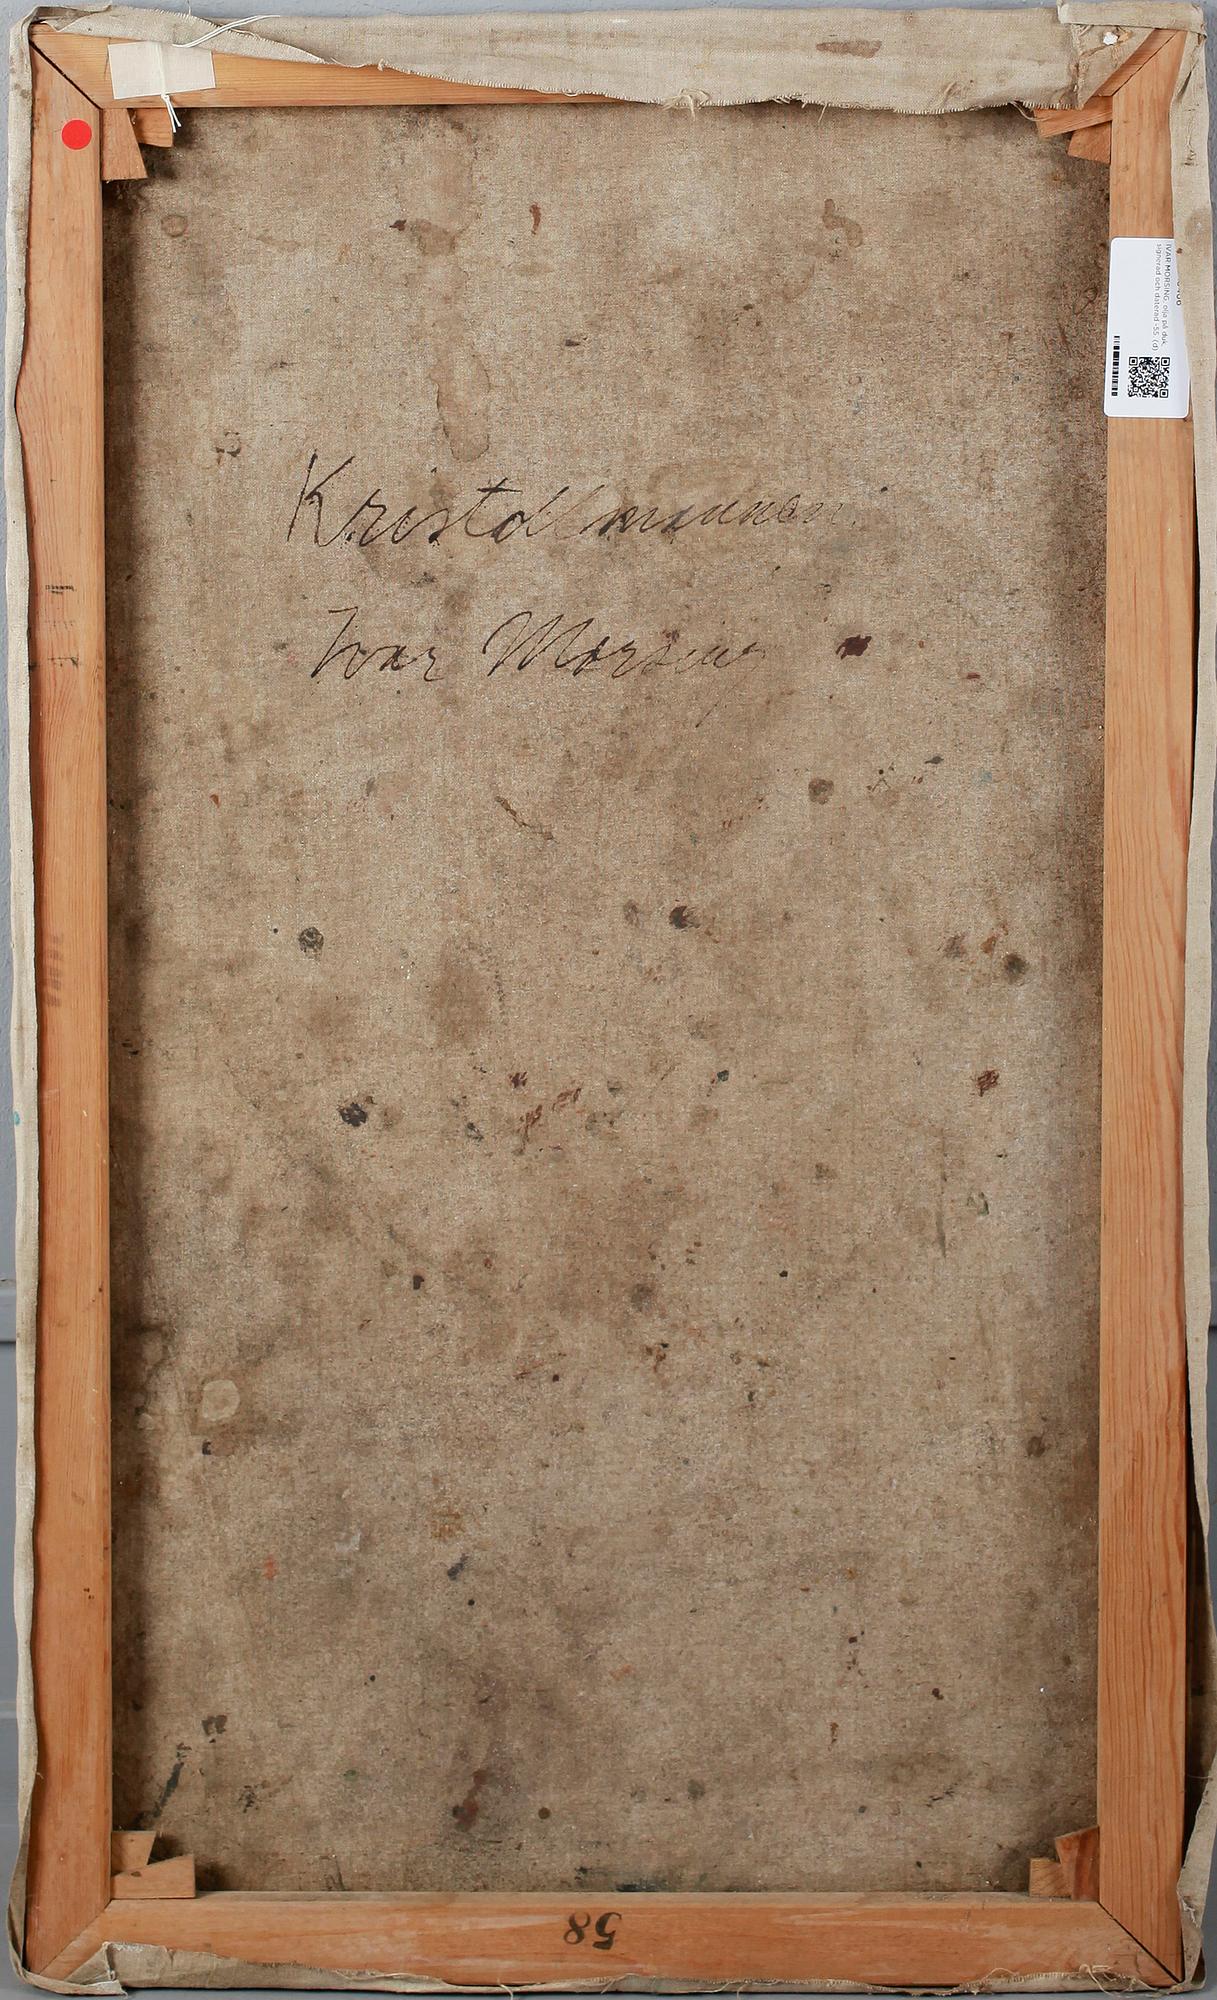 Kristallmannen
Ivar Morsing
IVAR MORSING, olja på duk,
signerad och daterad -55. (d)
58